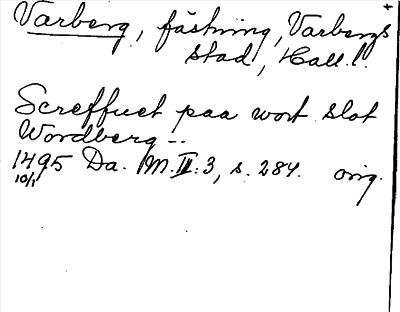 Varberg, fästning, Varbergs
stad, Hall.l.
Screffuet paa wort slot
Wordberg --
1495 Da. M. III: 3, s. 284. orig.
10/1